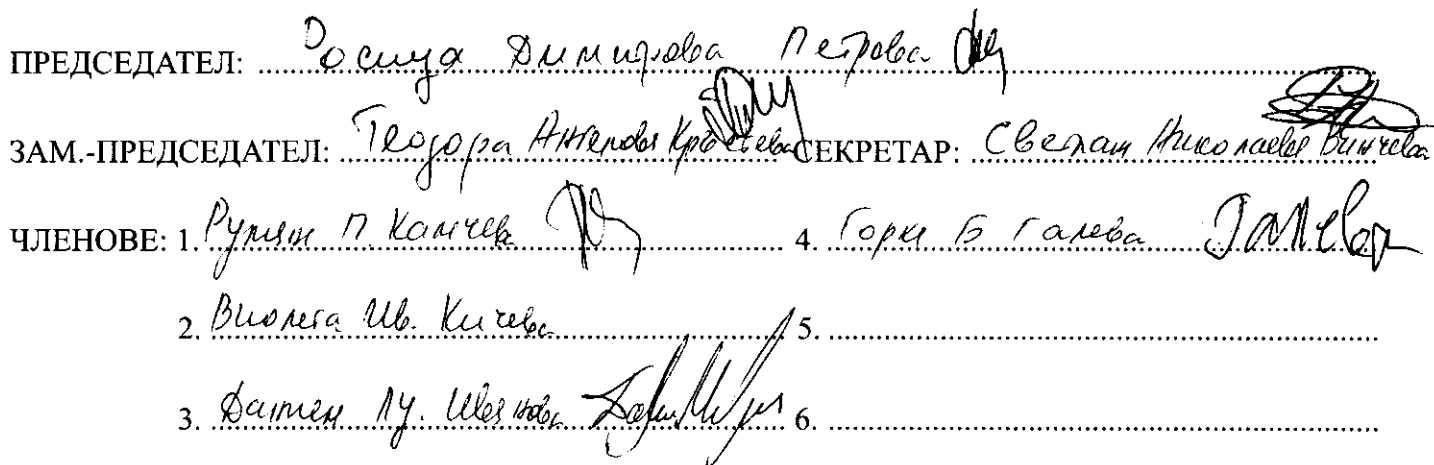 ПРЕДСЕДАТЕЛ: Росица Димитрова Петрова
ЗАМ.-ПРЕДСЕДАТЕЛ: Теодора Ангелова СЕКРЕТАР: Светлан Николаева Винчева
ЧЛЕНОВЕ: 1. Румян П. Камчев 4. Горке Б Галева Галева
2. Виолета Ив. Кичева 5.
3. Лу. Иванова 6.